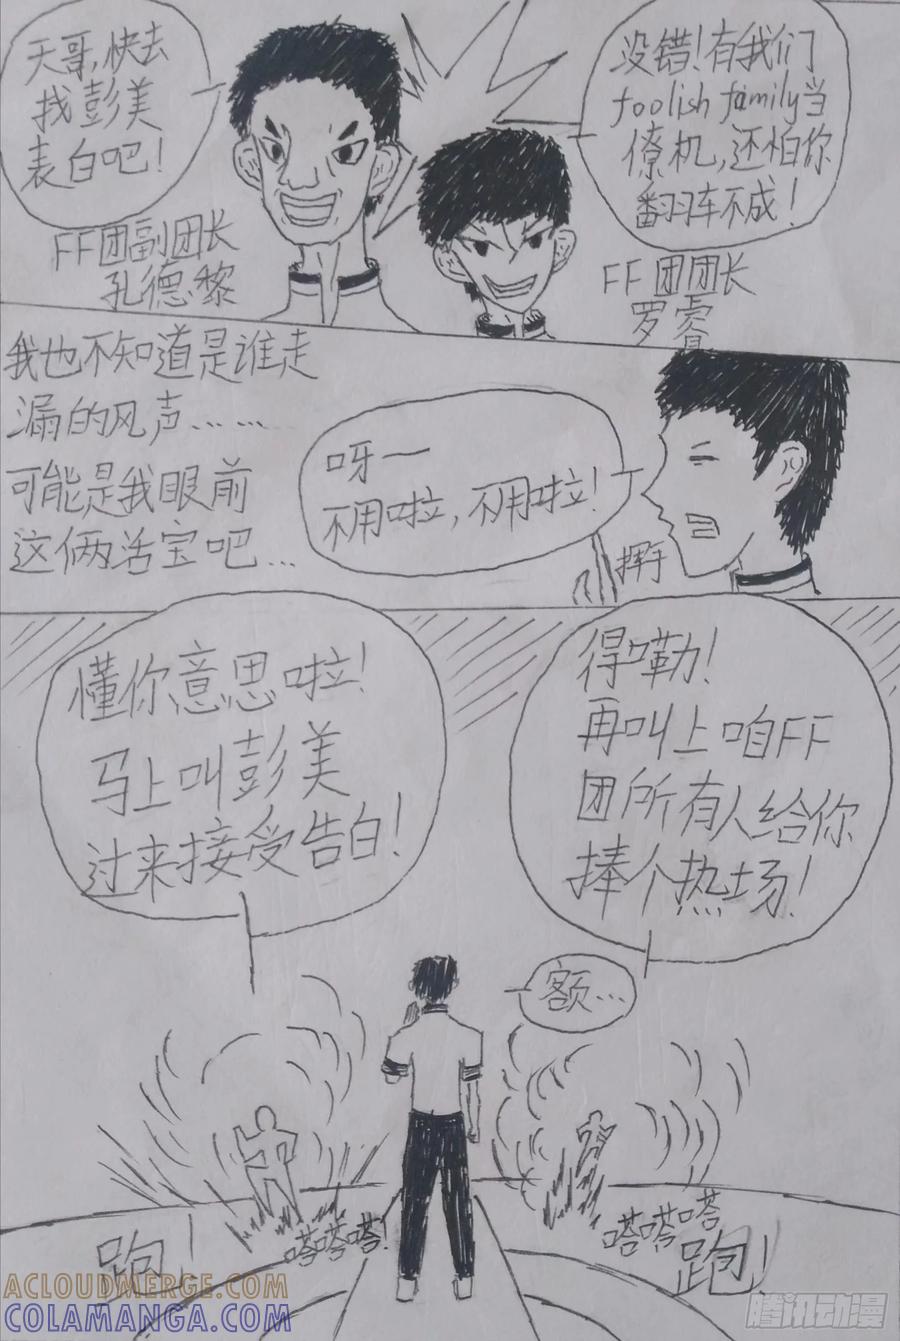 天哥,快去
找彭美
表白吧!
没错!有我们
foolish family当
僚机,还怕你
翻车不成!
FF团副团长
孔德黎
FF团团长
罗睿
我也不知道是谁走
漏的风声……
可能是我眼前
这俩活宝吧…
呀一
不用啦,不用啦!
挥手
懂你意思啦!
马上叫彭美
过来接受告白!
得嘞!
再叫上咱FF
团所有人给你
捧个热场!
额…
跑!
嗒嗒嗒!
嗒嗒嗒
跑!
ACLOUDMERGE.COM
COLAMANGA.COM
腾讯动漫